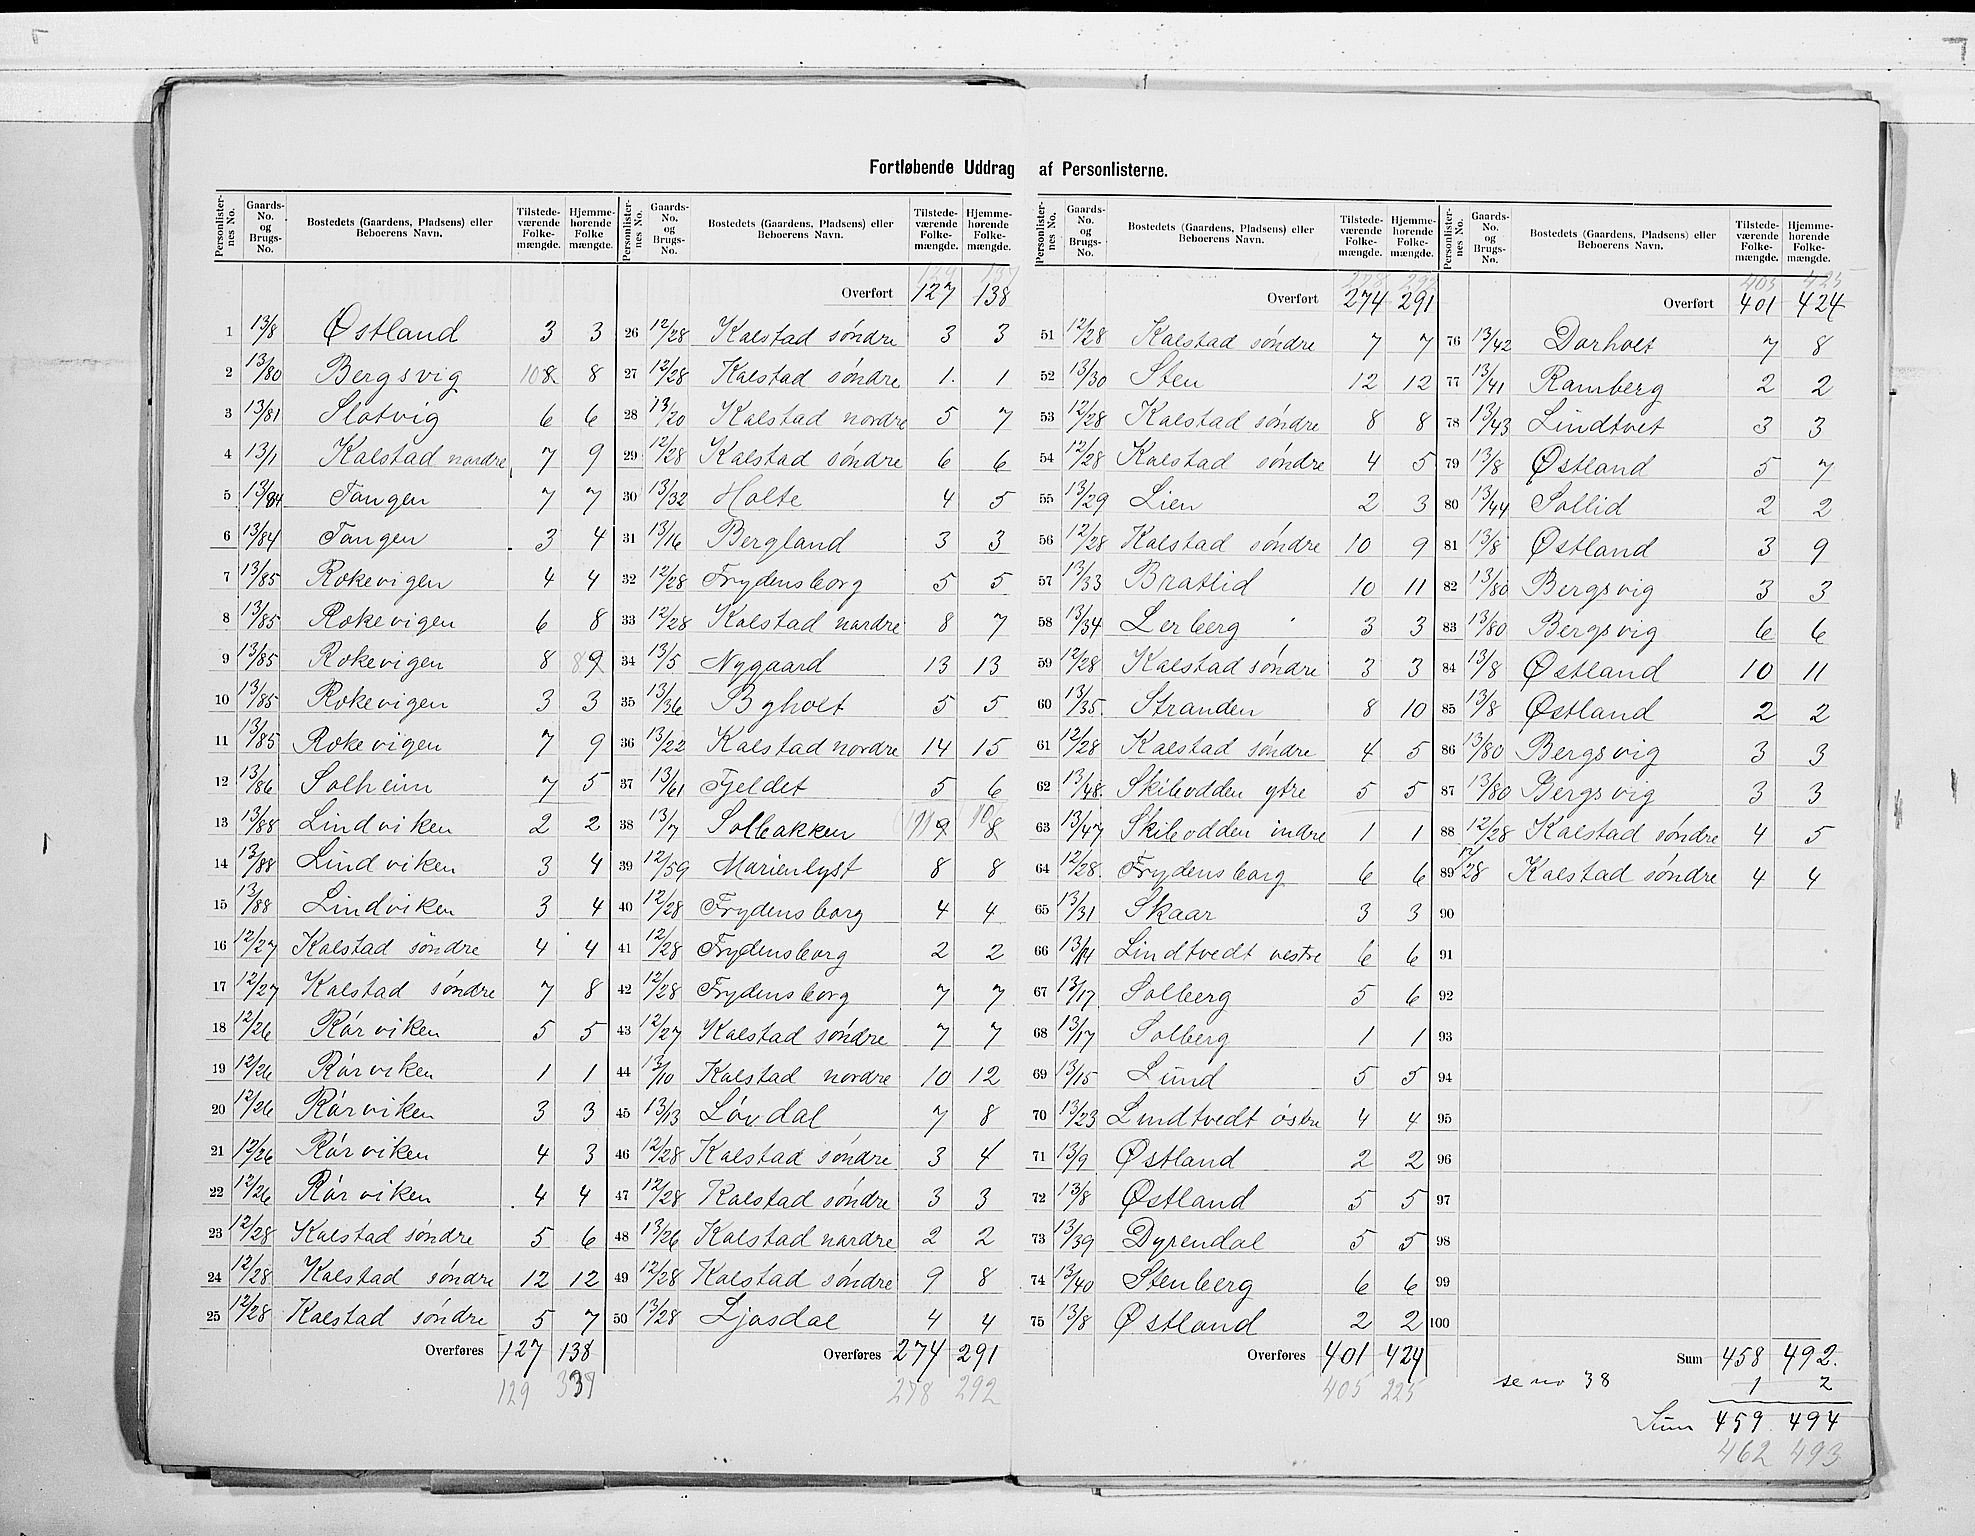 Fortløbende Uddrag af Personlisterne.
Personlister-nes No. Gaards-No. og Brugs-No. Bostedets (Gaardens, Pladsens) eller Beboerens Navn. Tilstede-værende Folke-mængde. Hjemme-hørende Folke mængde.
1 13/8 Østland 3 3
2 13/80 Bergsvig 10 8 8
3 13/81 Slotvig 6 6
4 13/1 Kalstad nordre 7 9
5 13/84 Tangen 7 7
6 13/84 Tangen 3 4
7 13/85 Rokevigen 4 4
8 13/85 Rokevigen 6 8
9 13/85 Rokevigen 8 8 9
10 13/85 Rokevigen 3 3
11 13/85 Rokevigen 7 9
12 13/86 Solheim 7 5
13 13/88 Lindviken 2 2
14 13/88 Lindviken 3 4
15 13/88 Lindviken 3 4
16 12/27 Kalstad söndre 4 4
17 12/27 Kalstad söndre 7 8
18 12/26 Rörviken 5 5
19 12/26 Rörviken 1 1
20 12/26 Rörviken 3 3
21 12/26 Rörviken 4 3
22 12/26 Rörviken 4 4
23 12/28 Kalstad söndre 5 6
24 12/28 Kalstad söndre 12 12
25 12/28 Kalstad söndre 5 7
Overføres 127 138
129
Personlister-nes No. Gaards-No. og Brugs-No. Bostedets (Gaardens, Pladsens) eller Beboerens Navn. Tilstede-værende Folke-mængde. Hjemme-hørende Folke-mængde.
129 137
Overført 127 138
26 12/28 Kalstad söndre 3 3
27 12/28 Kalstad söndre 1 1
28 13/20 Kalstad nordre 5 7
29 12/28 Kalstad söndre 6 6
30 13/32 Holte 4 5
31 13/16 Bergland 3 3
32 12/28 Frydensborg 5 5
33 12/28 Kalstad nordre 8 7
34 13/5 Nygaard 13 13
35 13/36 Bgholt 5 5
36 13/22 Kalstad nordre 14 15
37 13/61 Fjeldet 5 6
38 13/7 Solbakken 11 9 10 8
39 12/59 Marienlyst 8 8
40 12/28 Frydensborg 4 4
41 12/28 Frydensborg 2 2
42 12/28 Frydensborg 7 7
43 12/27 Kalstad söndre 7 7
44 13/10 Kalstad nordre 10 12
45 13/13 Lövdal 7 8
46 12/28 Kalstad söndre 3 4
47 12/28 Kalstad söndre 3 3
48 13/26 Kalstad nordre 2 2
49 12/28 Kalstad söndre 9 8
50 13/28 Ljosdal 4 4
Overføres 274 291
278 292
Personlister-nes No. Gaards-No. og Brugs-No. Bostedets (Gaardens, Pladsens) eller Beboerens Navn. Tilstede-værende Folke-mængde. Hjemme-hørende Folke-mængde.
278 292
Overført 274 291
51 12/28 Kalstad söndre 7 7
52 13/30 Sten 12 12
53 12/28 Kalstad söndre 8 8
54 12/28 Kalstad söndre 4 5
55 13/29 Lien 2 3
56 12/28 Kalstad söndre 10 9
57 13/33 Bratlid 10 11
58 13/34 Lerberg 3 3
59 12/28 Kalstad söndre 3 3
60 13/35 Stranden 8 10
61 12/28 Kalstad söndre 4 5
62 13/48 Skibodden ytre 5 5
63 13/47 Skibodden indre 1 1
64 12/28 Frydensborg 6 6
65 13/31 Skaar 3 3
66 13/14 Lindtvedt vestre 6 6
67 13/17 Solberg 5 6
68 13/17 Solberg 1 1
69 13/15 Lund 5 5
70 13/23 Lindtvedt östre 4 4
71 13/9 Østland 2 2
72 13/8 Østland 5 5
73 13/39 Dyrendal 5 5
74 13/40 Stenberg 6 6
75 13/8 Østland 2 2
Overføres 401 424
405 225
Personlister-nes No. Gaards-No. og Brugs-No. Bostedets (Gaardens, Pladsens) eller Beboerens Navn. Tilstede-værende Folke-mængde. Hjemme-hørende Folke-mængde.
405 425
Overført 401 424
76 13/42 Dorholt 7 8
77 13/41 Ramberg 2 2
78 13/43 Lindtvet 3 3
79 13/8 Østland 5 7
80 13/44 Sollid 2 2
81 13/8 Østland 3 9
82 13/80 Bergsvig 3 3
83 13/80 Bergsvig 6 6
84 13/8 Østland 10 11
85 13/8 Østland 2 2
86 13/80 Bergsvig 3 3
87 13/80 Bergsvig 3 3
88 12/28 Kalstad söndre 4 5
89 12/28 Kalstad söndre 4 4
90
91
92
93
94
95
96
97
98
99
100
Sum 458 492.
se no 38 1 2
Sum 459 494
462 493